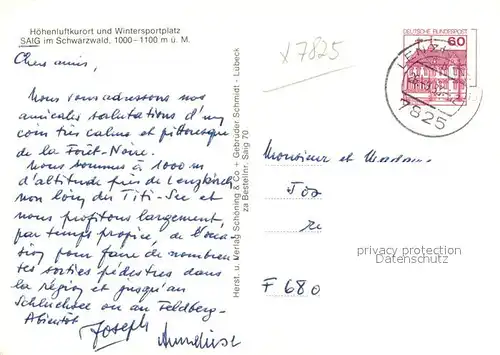 Höhenluftkurort und Wintersportplatz
SAIG im Schwarzwald, 1000-1100 m ü. M.
Chers amis,
Nous vous adressons nos
amicales salutations d'un
coin très calme et pittoresque
de la Forêt-Noire.
Nous sommes à 1000 m
d'altitude près de Lenzkirch
non loin du Titi-See et
nous profitons largement,
par temps propice, de l'occa-
sion pour faire de nombreu
ses sorties pédestres dans
la région et jusqu'au
Schluchsee ou au Feldberg.
A bientôt
Joseph
Herst. u. Verlag Schöning & Co + Gebrüder Schmidt - Lübeck
za Bestellnr. Saig 70
x 7825
DEUTSCHE BUNDESPOST
60
LENZ
7825
Monsieur et Madam
F 680
privacy protection
Datenschutz